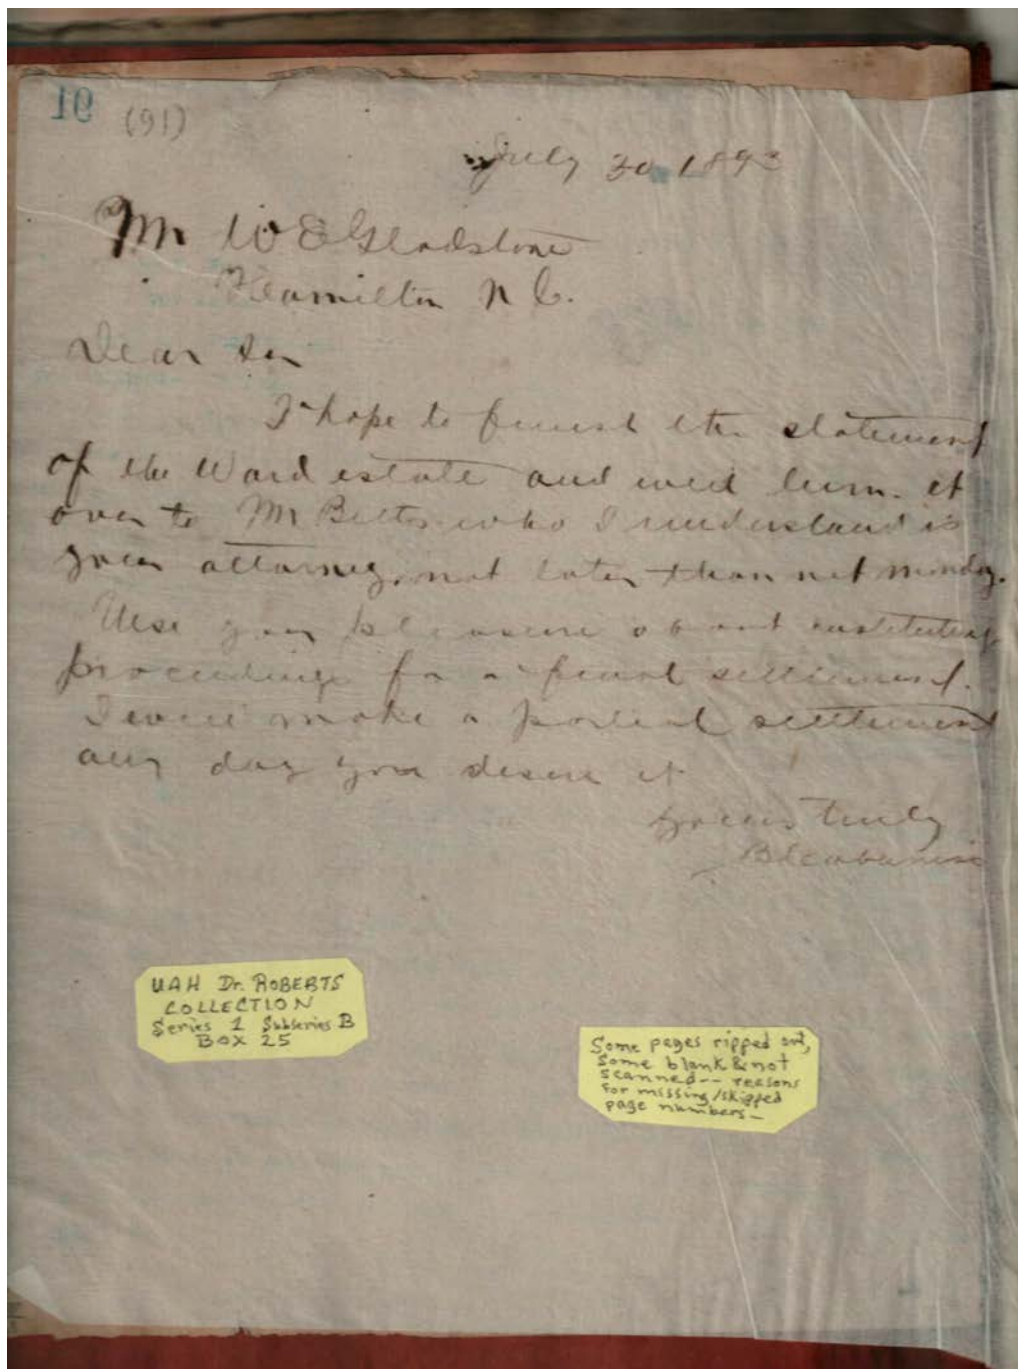 91 (91)
July 30 1892
Mr W E Gladstone
Hamilton N C.
Dear Sir
I hope to finish the statement
of the Ward estate and will turn it
over to Mr Betts who I understand is
your attorney, not later than next monday.
Use your pleasure about instituting
proceedings for a final settlement.
I will make a partial settlement
any day you desire it
Yours truly
B C Cabaniss
UAH Dr. ROBERTS
COLLECTION
Series 1 Subseries B
BOX 25
Some pages ripped out,
Some blank & not
scanned -- reasons
for missing/skipped
page numbers_